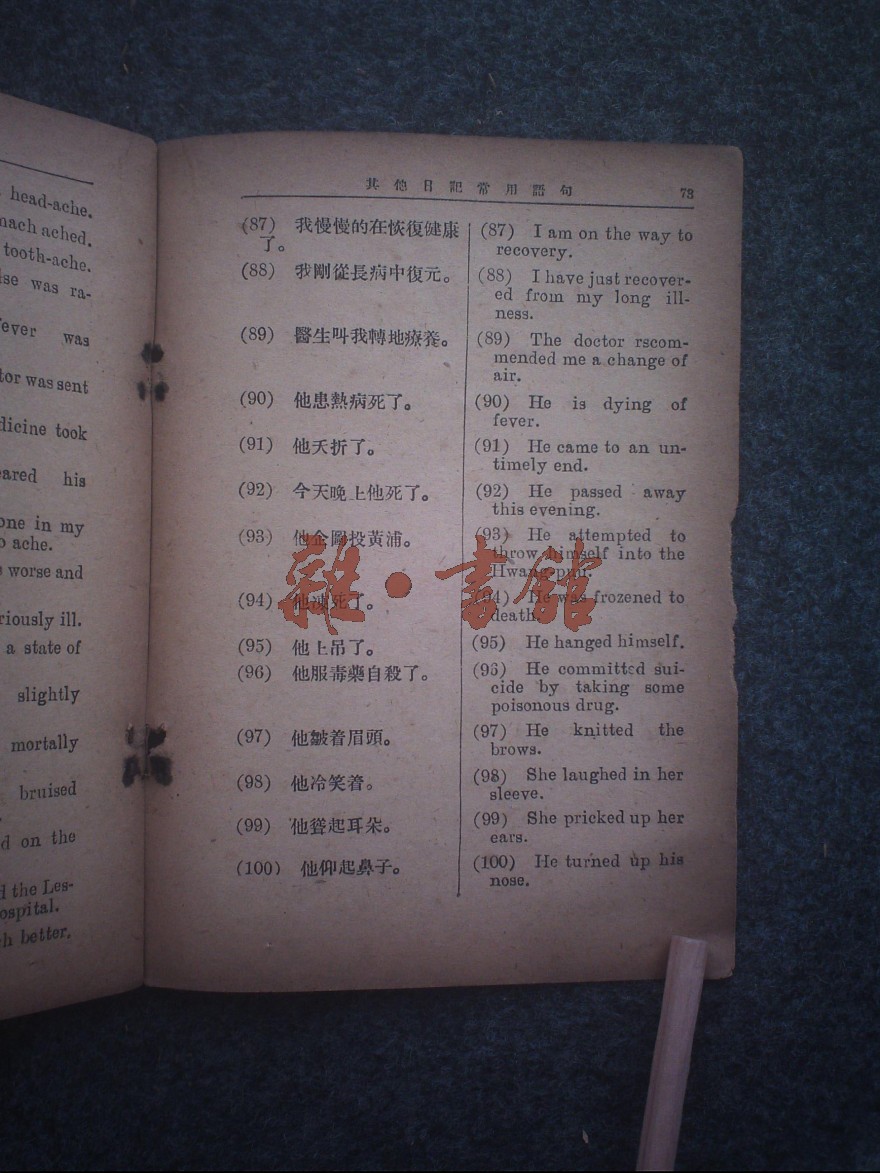 head-ache.
ached.
tooth-ache.
was ra-
was
was sent
took
his
one in my
ache.
worse and
ill.
a state of
slightly
mortally
bruised
on the
the Les-
better.
其他日記常用語句 73
(87) 我慢慢的在恢復健康
了。
(88) 我剛從長病中復元。
(89) 醫生叫我轉地療養。
(90) 他患熱病死了。
(91) 他夭折了。
(92) 今天晚上他死了。
(93) 他企圖投黃浦。
(94) 他凍死了。
(95) 他上吊了。
(96) 他服毒藥自殺了。
(97) 他皺着眉頭。
(98) 他冷笑着。
(99) 他聳起耳朵。
(100) 他仰起鼻子。
(87) I am on the way to
recovery.
(88) I have just recover-
ed from my long ill-
ness.
(89) The doctor rscom-
mended me a change of
air.
(90) He is dying of
fever.
(91) He came to an un-
timely end.
(92) He passed away
this evening.
(93) He attempted to
throw himself into the
Hwang-puu.
(94) He was frozened to
death.
(95) He hanged himself.
(96) He committed sui-
cide by taking some
poisonous drug.
(97) He knitted the
brows.
(98) She laughed in her
sleeve.
(99) She pricked up her
ears.
(100) He turned up his
nose.
雜·書館